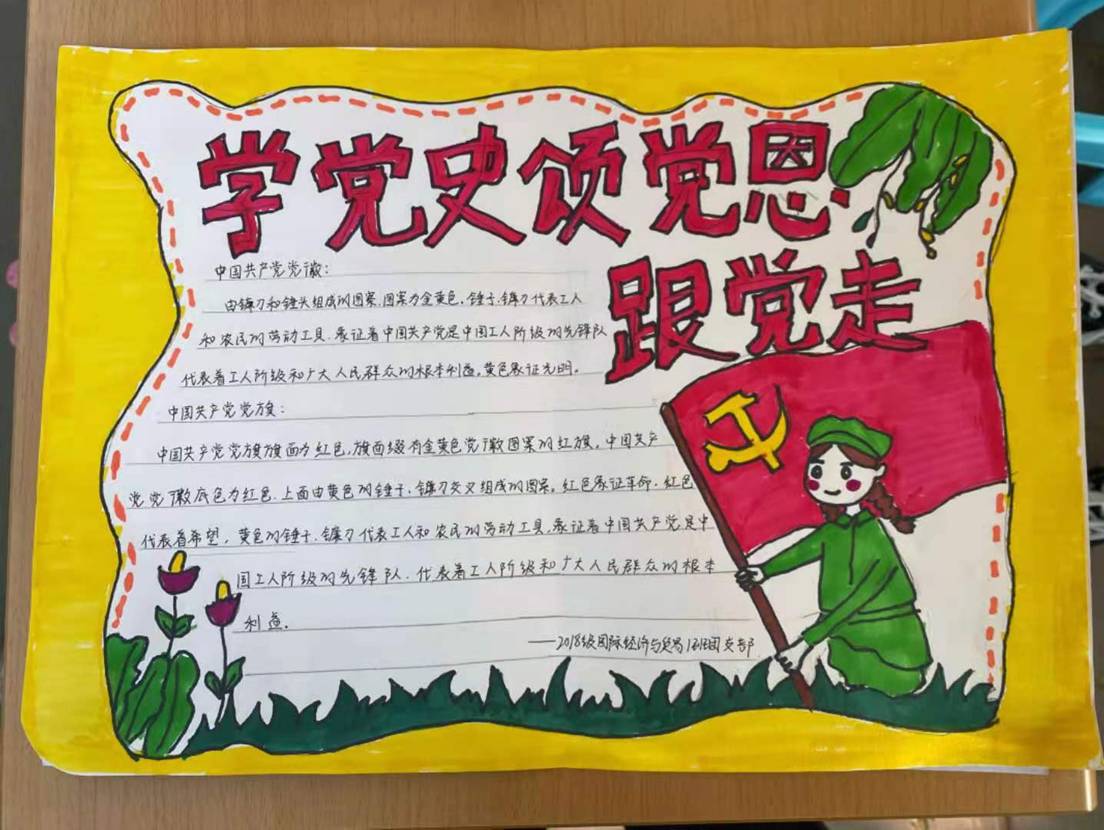 学党史颂党恩
跟党走
中国共产党党徽：
由镰刀和锤头组成的图案，图案为金黄色，锤子、镰刀代表工人
和农民的劳动工具，象证着中国共产党是中国工人阶级的先锋队
代表着工人阶级和广大人民群众的根本利益，黄色象证光明。
中国共产党党旗：
中国共产党党旗旗面为红色，旗面缀有金黄色党徽图案的红旗。中国共产
党党徽底色为红色，上面由黄色的锤子、镰刀交叉组成的图案。红色象证革命，红色
代表着希望，黄色的锤子、镰刀代表工人和农民的劳动工具，象证着中国共产党是中
国工人阶级的先锋队，代表着工人阶级和广大人民群众的根本
利益。
——2018级国际经济与贸易 团支部